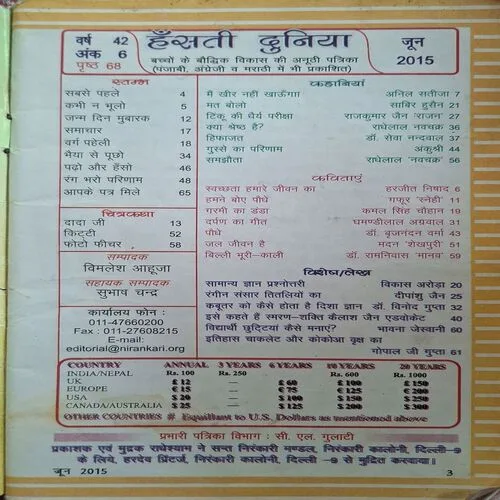 वर्ष 42
अंक 6
पृष्ठ 68
हँसती दुनिया
बच्चों के बौद्धिक विकास की अनूठी पत्रिका
(पंजाबी, अंग्रेजी व मराठी में भी प्रकाशित)
जून
2015
स्तम्भ
सबसे पहले 4
कभी न भूलो 5
जन्म दिन मुबारक 12
समाचार 17
वर्ग पहेली 18
भैया से पूछो 34
पढ़ो और हँसो 46
रंग भरो परिणाम 48
आपके पत्र मिले 65
चित्रकथा
दादा जी 13
किटटी 52
फोटो फीचर 58
सम्पादक
विमलेश आहूजा
सहायक सम्पादक
सुभाष चन्द्र
कार्यालय फोन :
011-47660200
Fax : 011-27608215
E-mail:
editorial@nirankari.org
कहानियां
मैं खीर नहीं खाऊँगा अनिल सतीजा 7
मत बोलो साबिर हुसैन 21
टिंकू की धैर्य परीक्षा राजकुमार जैन 'राजन' 27
क्या श्रेष्ठ है? राधेलाल नवचक्र 36
हिफाजत डॉ. सेवा नन्दवाल 37
गुस्से का परिणाम अंकुश्री 44
समझौता राधेलाल 'नवचक्र' 56
कविताएं
स्वच्छता हमारे जीवन का हरजीत निषाद 6
हमने बोए पौधे गफूर 'स्नेही' 11
गरमी का डंडा कमल सिंह चौहान 19
दर्पण का गीत घमण्डीलाल अग्रवाल 31
पौधे डॉ. बृजनंदन वर्मा 43
जल जीवन है मदन 'शेखपुरी' 51
बिल्ली भूरी-काली डॉ. रामनिवास 'मानव' 59
विशेष/लेख
सामान्य ज्ञान प्रश्नोत्तरी विकास अरोड़ा 20
रंगीन संसार तितलियों का दीपांशु जैन 25
कबूतर को कैसे होता है दिशा ज्ञान डॉ. विनोद गुप्ता 32
इसे कहते हैं स्मरण-शक्ति कैलाश जैन एडवोकेट 40
विद्यार्थी छुट्टियां कैसे मनाएं? भावना जेस्वानी 60
इतिहास चाकलेट और कोकोआ वृक्ष का
गोपाल जी गुप्ता 61
COUNTRY ANNUAL 3 YEARS 6 YEARS 10 YEARS 20 YEARS
INDIA/NEPAL Rs. 100 Rs. 250 — Rs. 600 Rs. 1000
UK £ 12 — £ 60 £ 100 £ 150
EUROPE € 15 — € 75 € 125 € 200
USA $ 20 — $ 100 $ 150 $ 250
CANADA/AUSTRALIA $ 25 — $ 125 $ 200 $ 300
OTHER COUNTRIES # Equillant to U.S. Dollars as mentioned above
प्रभारी पत्रिका विभाग : सी. एल. गुलाटी
प्रकाशक एवं मुद्रक राधेश्याम ने सन्त निरंकारी मण्डल, निरंकारी कालोनी, दिल्ली-9
के लिये, हरदेव प्रिंटर्ज, निरंकारी कालोनी, दिल्ली -9 से मुद्रित करवाया।
जून 2015 3